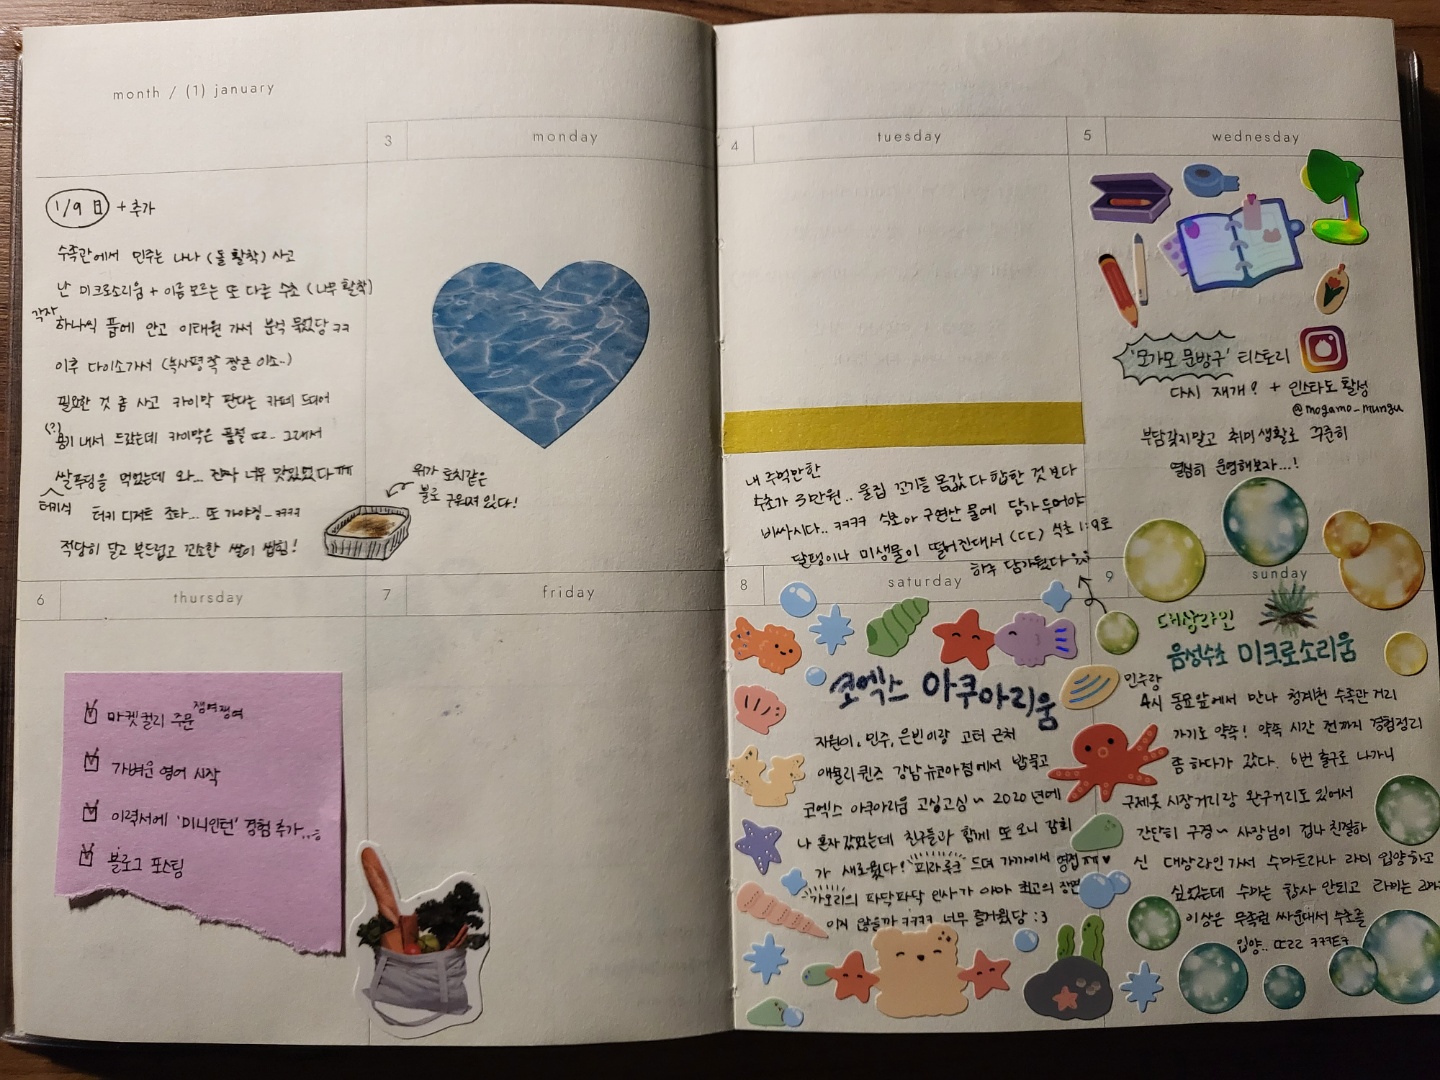 month / (1) january
3 monday
1/9 日 + 추가
수족관에서 민주는 나나 (돌 활착) 사고
난 미크로소리움 + 이름 모르는 또 다른 수초 (나무 활착)
각자
하나씩 품에 안고 이태원 가서 분식 묵었당 ㅋㅋ
이후 다이소가서 (녹사평 쪽 짱큰 이소..)
필요한 것 좀 사고 카이막 판다는 카페 드디어
(?)
용기 내서 드갔는데 카이막은 품절 ㄸㄹ.. 그래서
쌀푸딩을 먹었는데 와... 진짜 너무 맛있었다ㅠㅠ
터키식
터키 디저트 조타... 또 가야징_ㅋㅋㅋㅋ
적당히 달고 부드럽고 꼬소한 쌀이 씹힘!
위가 토치같은
불로 구워져 있다!
6 thursday
마켓컬리 주문 쟁여쟁여
가벼운 영어 시작
이력서에 '미니인턴' 경험 추가..
블로그 포스팅
7 friday
4 tuesday
내 주먹만한
수초가 3만원.. 울집 꼬기들 몸값 다 합한 것 보다
비싸시다.. ㅋㅋㅋㅋ 수초아 구연산 물에 담가 두어야
달팽이나 미생물이 떨어진대서 (ㄷㄷ) 식초 1:9로
하루 담가뒀다
5 wednesday
'모가모 문방구' 티스토리
다시 재개? + 인스타도 활성
@mogamo_mungu
부담갖지말고 취미생활로 꾸준히
열심히 운영해보자...!
8 saturday
코엑스 아쿠아리움
자원이, 민주, 은빈이랑 고터 근처
애슐리퀸즈 강남 뉴코아점에서 밥묵고
코엑스 아쿠아리움 고싱고싱~ 2020년에
나 혼자 갔었는데 친구들과 함께 또 오니 감회
가 새로웠다! '피라루크' 드뎌 가까이서 영접ㅠㅠ♥
가오리의 파닥파닥 인사가 아마 최고의 장면
이지 않을까 ㅋㅋㅋㅋ 너무 즐거웠당 :3
9 sunday
대상라인
음성수초 미크로소리움
민주랑
4시 동묘앞에서 만나 청계천 수족관 거리
가기로 약속! 약속 시간 전까지 경험정리
좀 하다가 갔다. 6번 출구로 나가니
구제옷 시장거리랑 완구거리도 있어서
간단히 구경~ 사장님이 겁나 친절하
신 대상라인 가서 수마트라나 라미 입양하고
싶었는데 수마는 합사 안되고 라미는
이상은 무족권 싸운대서 수초를
입양.. ㄸㄹㄹ